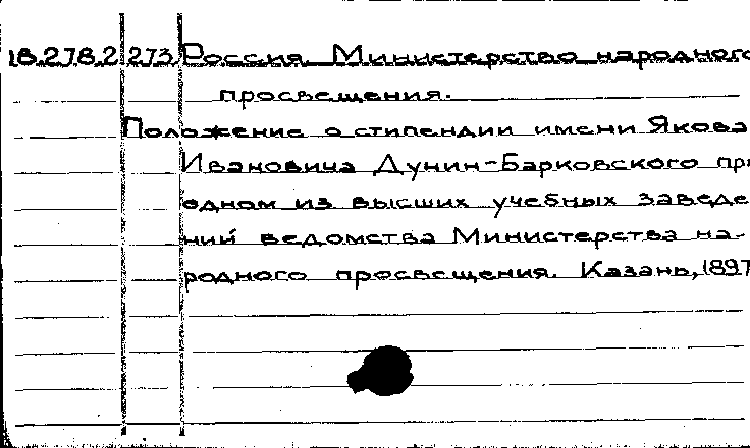 18.278.2 273 Россия. Министерство народного
просвещения.
Положение о стипендии имени Якова
Ивановича Дунин-Барковского при
одном из высших учебных заведе
ний ведомства Министерства на-
родного просвещения. Казань, 1897